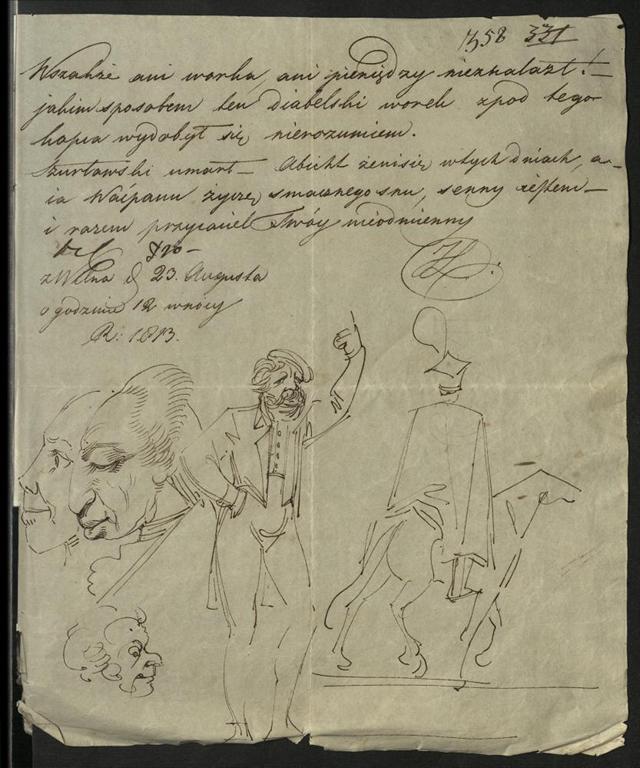 1358 331
Wszakże ani worka, ani pieniędzy nieznalazł!—
jakim sposobem ten diabelski worek zpod tego
kapca wydobył się nierozumiem.
Szurłowski umarł— Abicht żenisię wtych dniach, a
ia Waćpanu życzę smacznego snu, senny iestem—
i razem przyiaciel Twóy nieodmienny
z Wilna d 23. Augusta
o godzinie 12 wnocy
R: 1813.